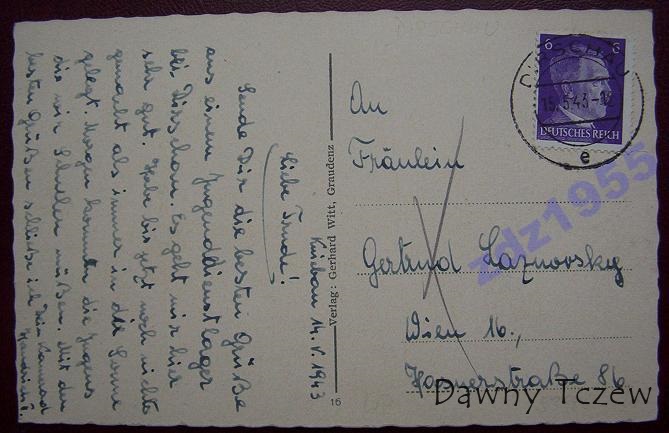 Kniebau 14. V. 1943
Liebe Trude!
Sende Dir die besten Grüße
aus einem Jugenddienstlager
bei Dirschau. Es geht mir hier
sehr gut. Habe bis jetzt noch nichts
gemacht als immer in der Sonne
gelegt. Morgen kommen die Jungens
die wir Schulen müßen. Mit den
besten Grüßen schließe ich Dein Kamerad
Verlag: Gerhard Witt, Graudenz
16
An
Fräulein
Gertrud Laznovsky
Wien 16.,
Hasnerstraße 86
6 6
DEUTSCHES REICH
DIRSCHAU
15.5.43
e
zdz1955
Dawny Tczew